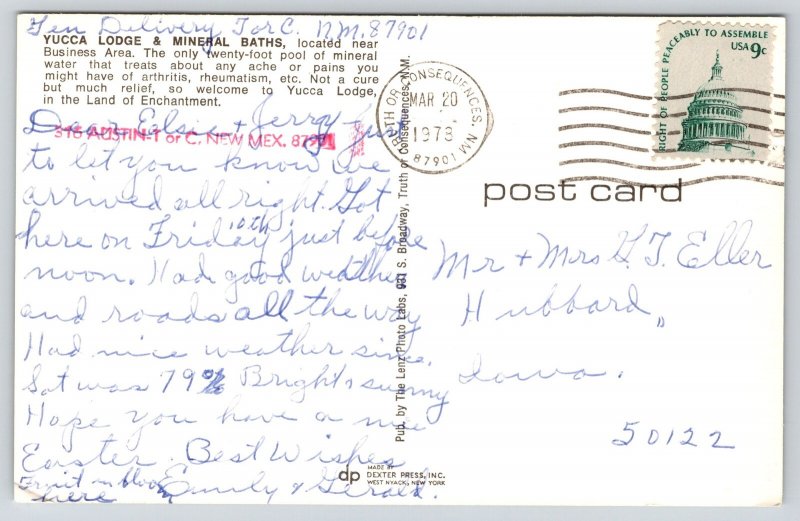 Gen Delivery T or C. N.M. 87901
YUCCA LODGE & MINERAL BATHS, located near
Business Area. The only twenty-foot pool of mineral
water that treats about any ache or pains you
might have of arthritis, rheumatism, etc. Not a cure
but much relief, so welcome to Yucca Lodge,
in the Land of Enchantment.
316 AUSTIN-T or C, NEW MEX. 87901
Dear Elsie + Jerry, Just
to let you know we
arrived all right. Got
here on Friday 10th just before
noon. Had good weather
and roads all the way
Had nice weather since.
Sat was 79° Bright & sunny
Hope you have a nice
Easter. Best Wishes
Fruit in bloom
here
Emily & Gerald.
Pub. by The Lenz Photo Labs, 931 S. Broadway, Truth or Consequences, N.M.
dp
MADE BY
DEXTER PRESS, INC.
WEST NYACK, NEW YORK
TRUTH OR CONSEQUENCES, NM
MAR 20
1978
87901
RIGHT OF PEOPLE PEACEABLY TO ASSEMBLE
USA 9c
post card
Mr + Mrs G. J. Eller
Hubbard,
Iowa.
50122